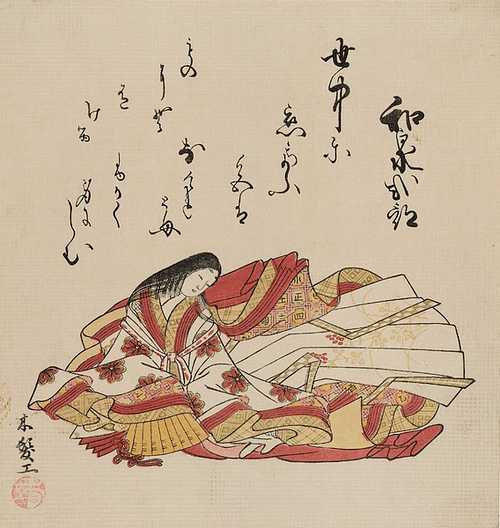 和泉式部
世中に
恋てふ
色は
なけれ
とも
ふかく
身にしむ
もの
にそ
あり
ける
木髪工